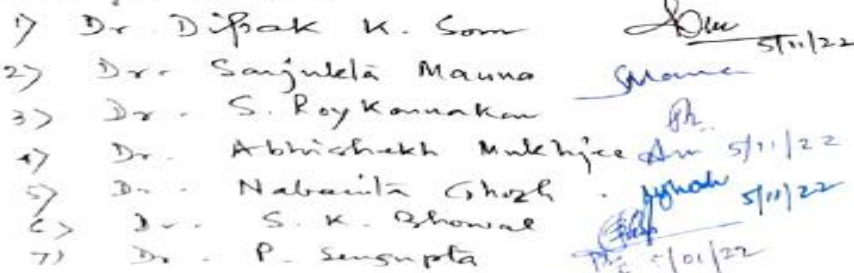 1) Dr. Dipak K. Som 5/11/22
2) Dr. Sanjukta Manna SManna
3) Dr. S. Roy Karmakar
4) Dr. Abhishekh Mukhjee 5/11/22
5) Dr. Nabanita Ghosh . NGhosh 5/11/22
6) Dr. S. K. Bhowal
7) Dr. P. Sengupta